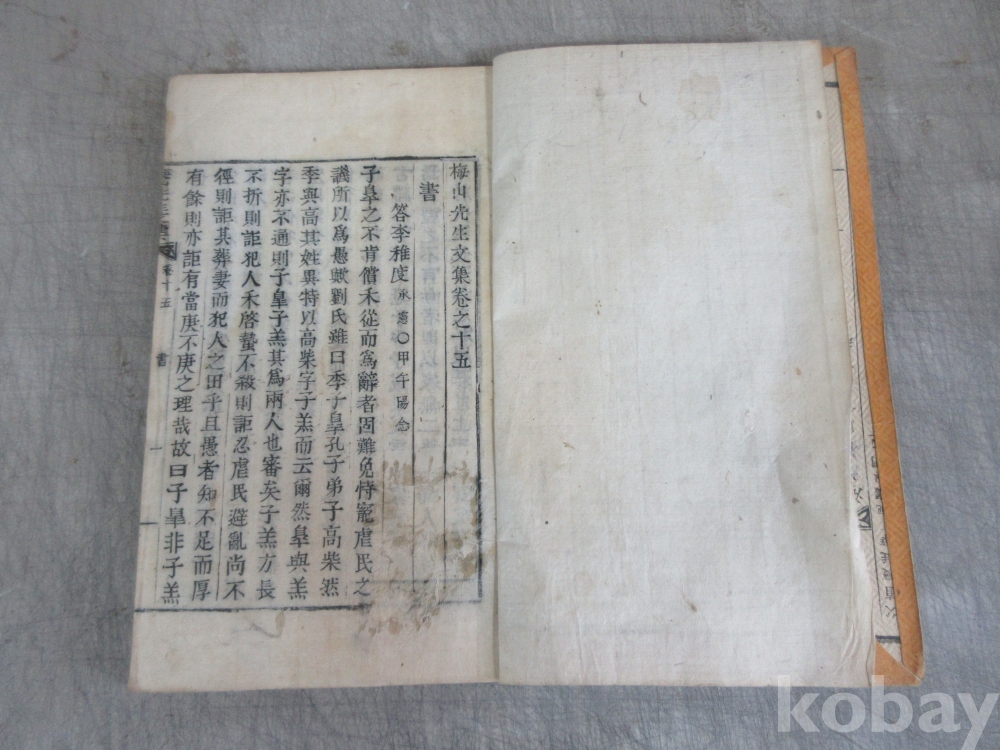 梅山先生文集卷之十五
書
答李稚度 承憲○甲午陽念
子臯之不肯償禾從而爲辭者固難免恃寵虐民之
議所以爲愚歟劉氏雖曰季子臯孔子弟子高柴然
季與高其姓異特以高柴字子羔而云爾然臯與羔
字亦不通則子臯子羔其爲兩人也審矣子羔方長
不折則詎犯人禾啓蟄不殺則詎忍虐民避亂尚不
徑則詎其葬妻而犯人之田乎且愚者知不足而厚
有餘則亦詎有當庚不庚之理哉故曰子臯非子羔
卷十五
書
一
kobay